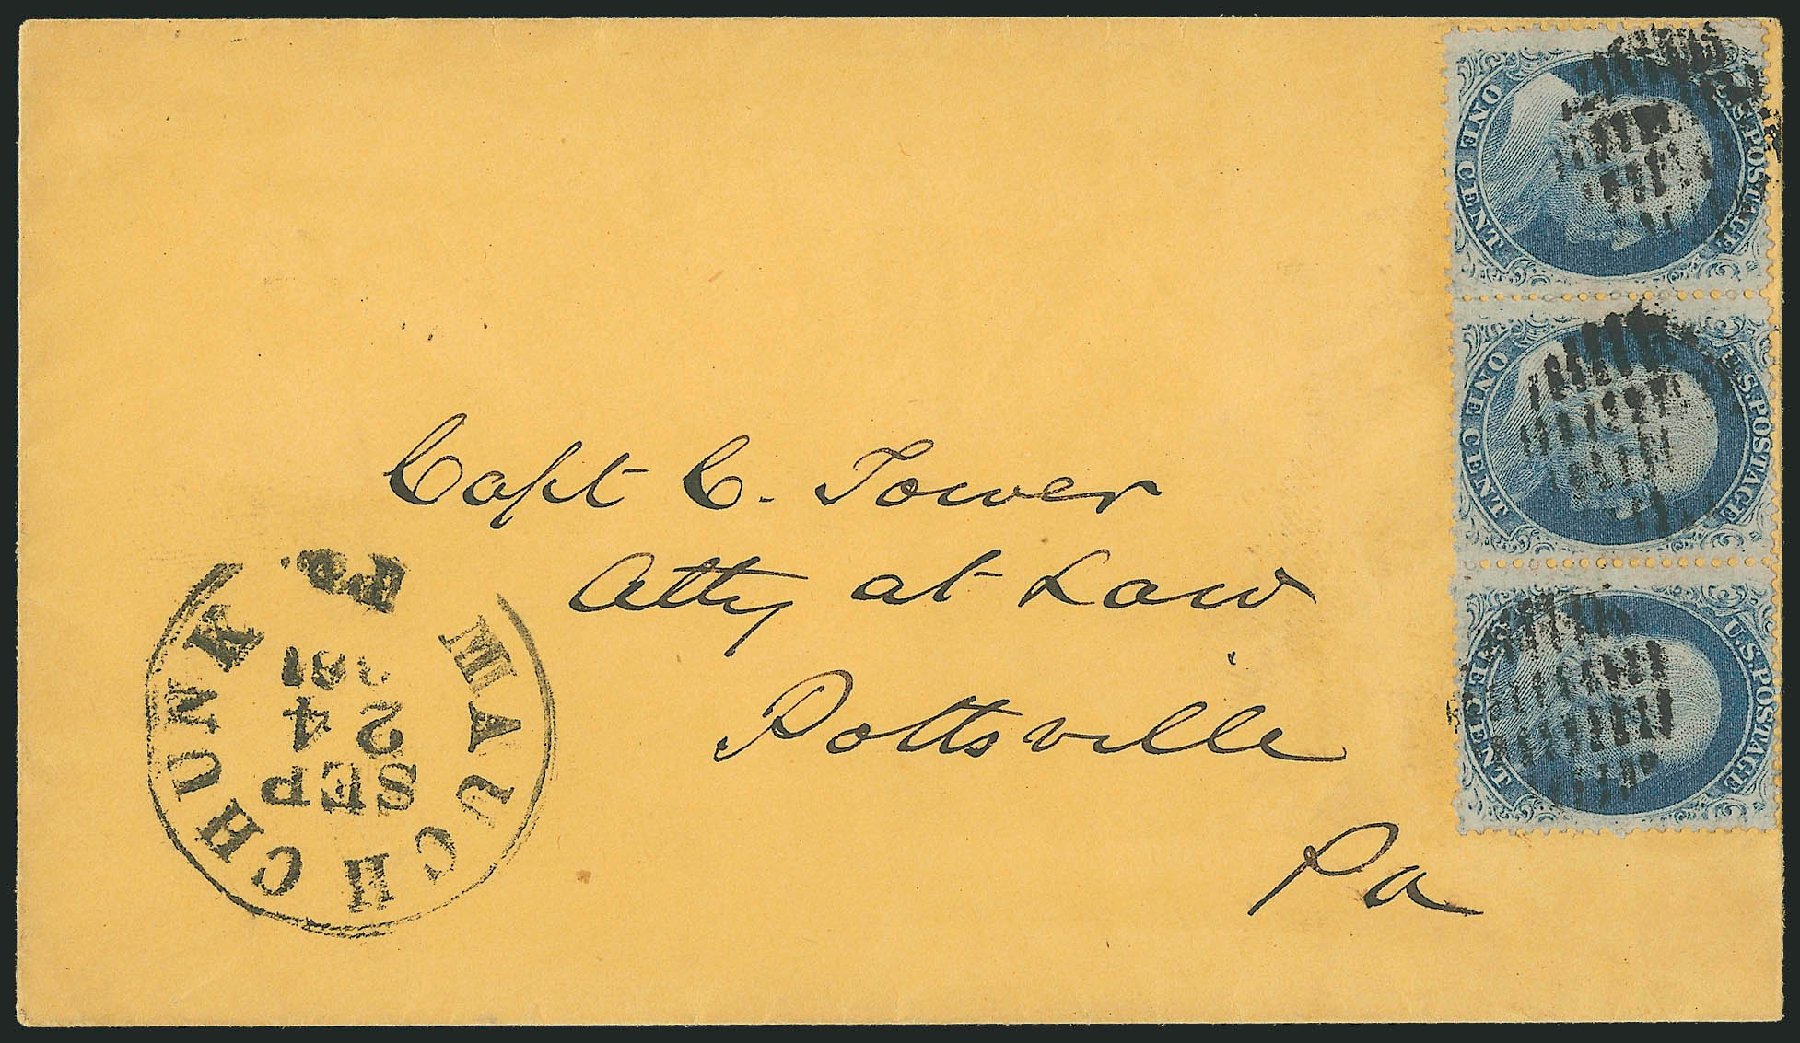 U.S. POSTAGE
ONE CENT
U.S. POSTAGE
ONE CENT
U.S. POSTAGE
CENT
Capt C. Tower
Atty at Law
Pottsville
Pa
MAUCH CHUNK Pa.
SEP
24